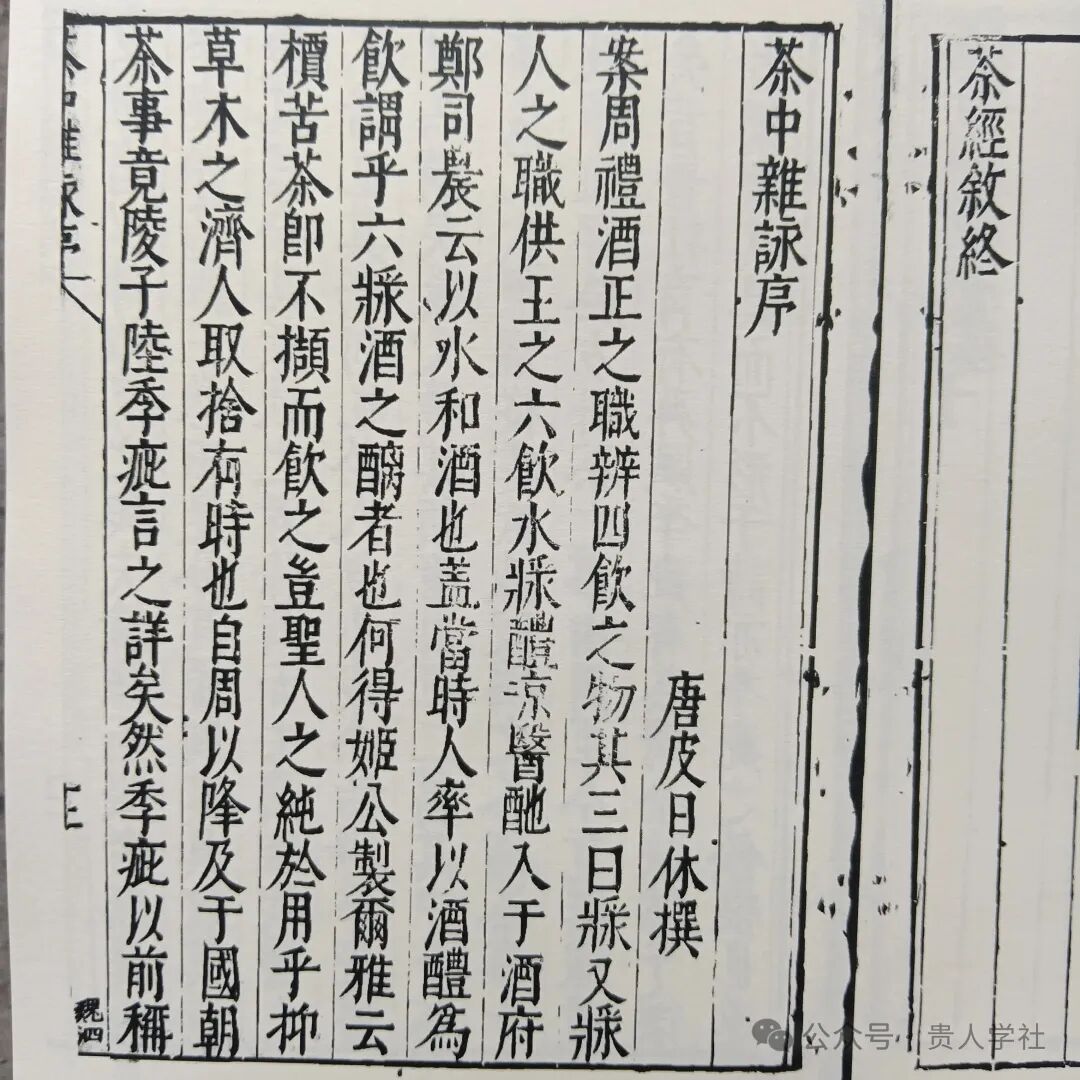 茶經敘終
茶中雜詠序
唐皮日休撰
案周禮酒正之職辨四飲之物其三曰漿又漿
人之職供王之六飲水漿醴涼醫酏入于酒府
鄭司農云以水和酒也盖當時人率以酒醴為
飲謂乎六漿酒之醨者也何得姬公製爾雅云
檟苦茶卽不擷而飲之豈聖人之純於用乎抑
草木之濟人取捨有時也自周以降及于國朝
茶事竟陵子陸季疵言之詳矣然季疵以前稱
魏泗
公众号·贵人学社